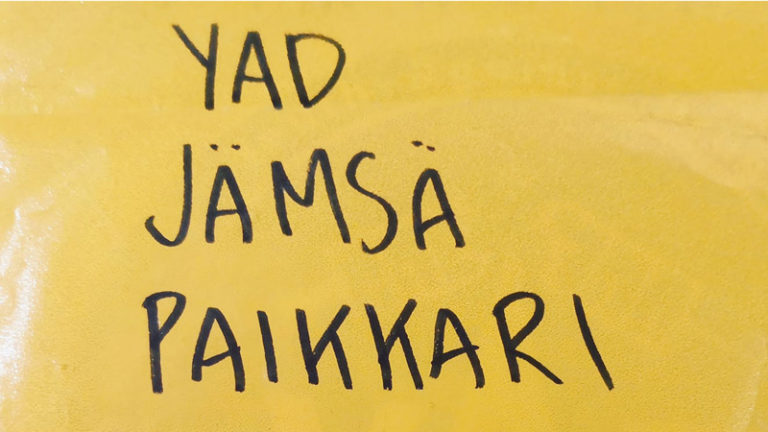 YAD
JÄMSÄ
PAIKKARI